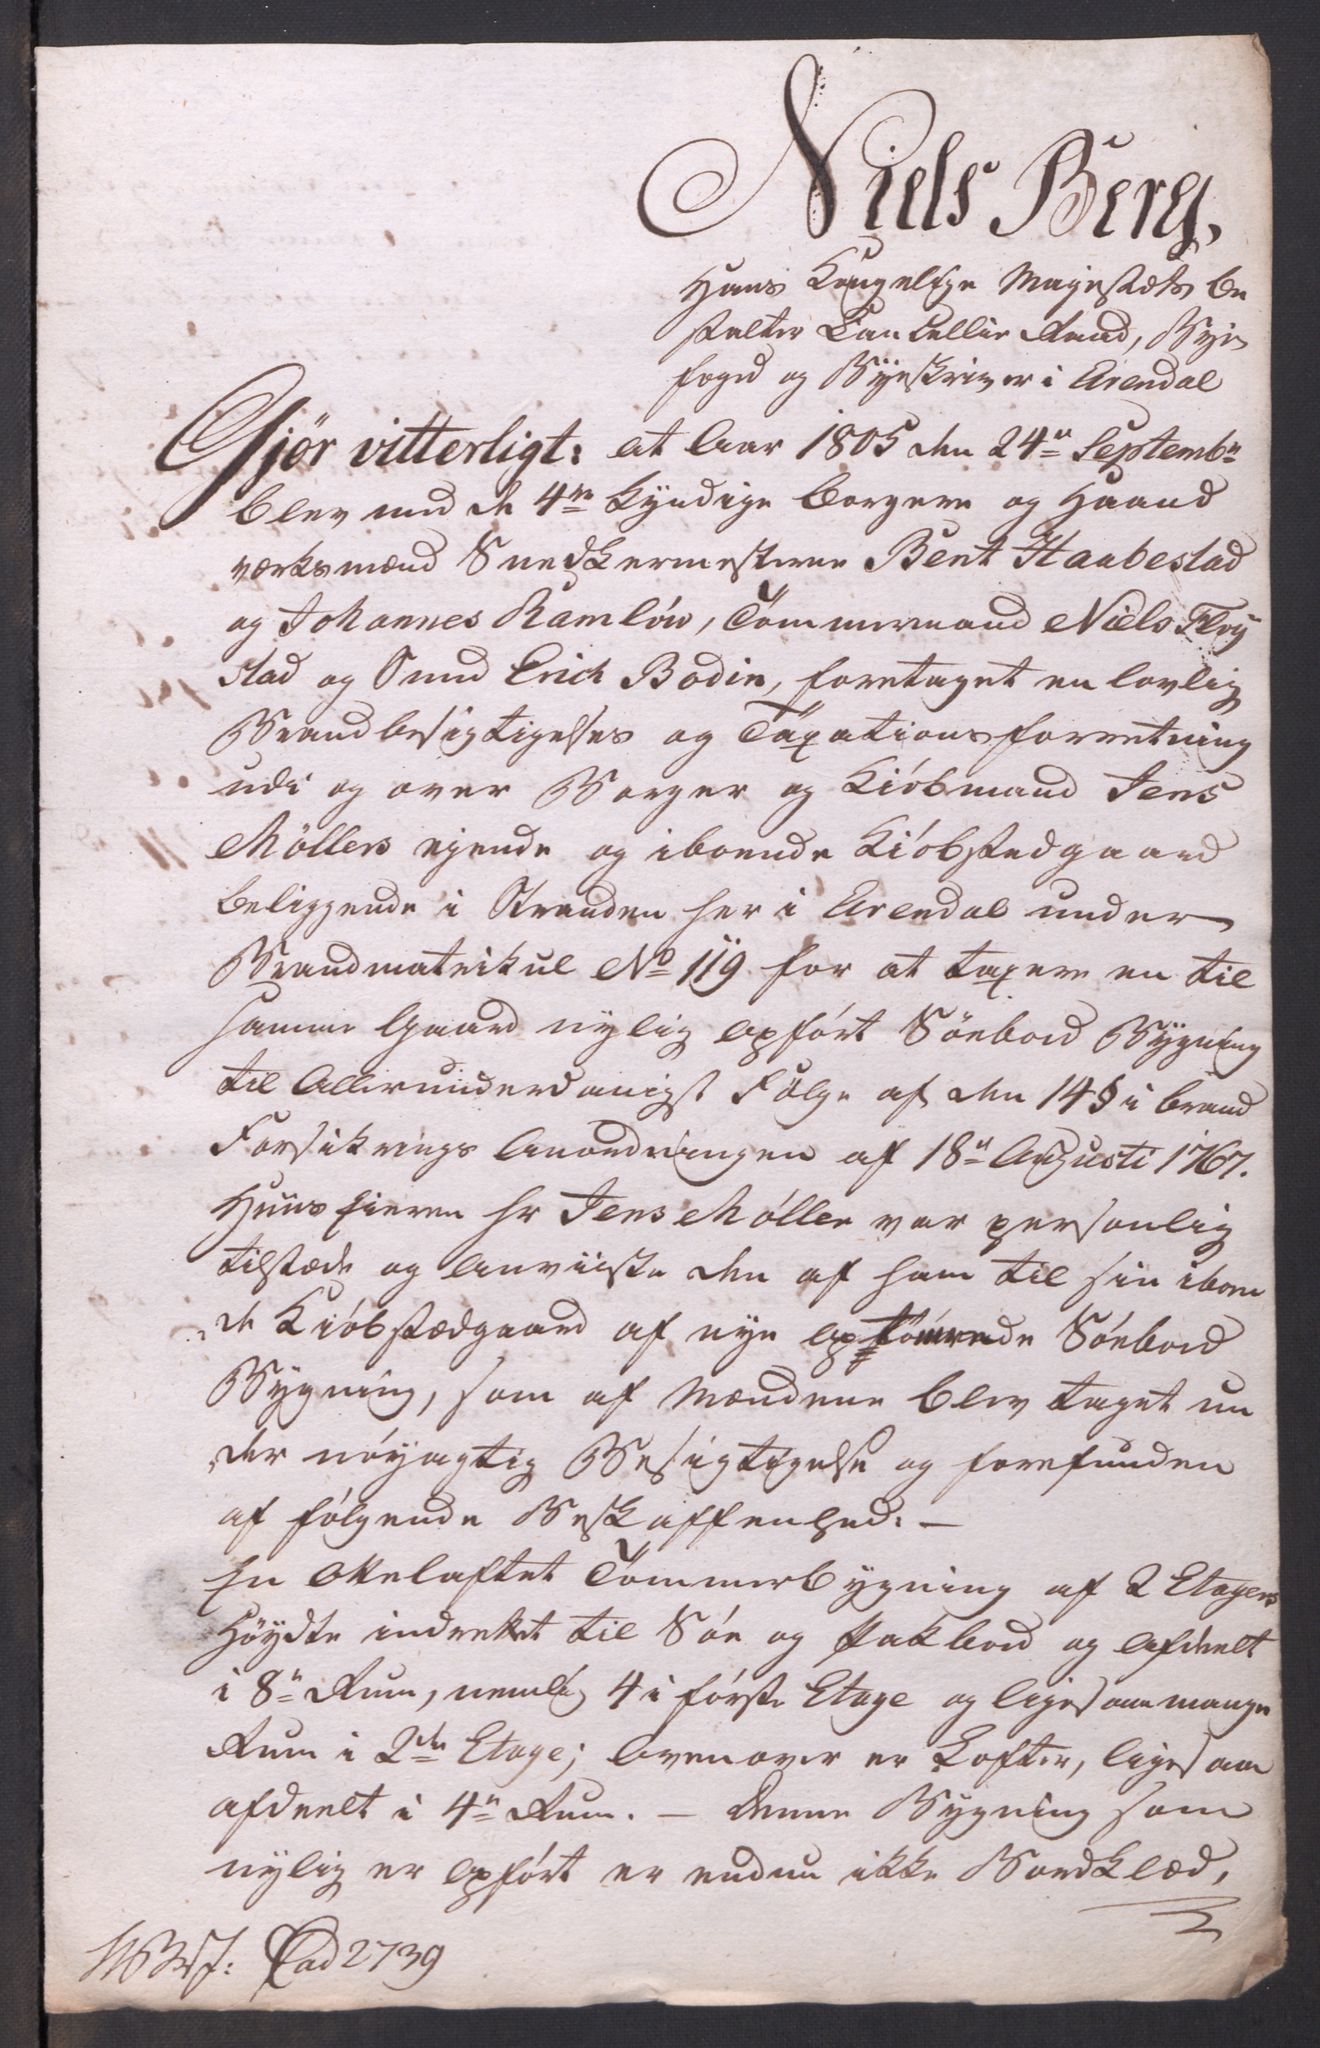 Niels Berg,
Hans Kongelige Majestæts be
stalter Cancellie Raad, Bye
foged og Byeskriver i Arendal
Gjör vitterligt: at Aar 1805 den 24de Septembr
blev med de 4re kyndige borgere og Haand
værksmænd Snedkermesterne Bent Haabestad
og Johannes Ramlöw, Tömmermand Niels Flöy
stad og Smed Erich Bodin, foretaget en lovlig
Brandbesigtigelses og Taxationsforretning
udi og over Borger og Kiöbmand Jens
Möllers ejende og iboende Kiöbstedgaard
beliggende i Stranden her i Arendal under
Brandmatrikul No 119 for at taxere en til
samme Gaard nylig opfört Söebod Bygning
til Allerunderdanigst Fölge af den 14 § i brand
Forsikrings Anordningen af 18de Augusti 1767.
Huuseieren Hr Jens Möller var personlig
tilstæde og anviiste den af ham til sin iboen
de Kiöbstædgaard af nye optömrede Söebod
Bygning, som af Mændene blev taget un
der nöyagtig Besigtigelse og forefunden
af fölgende Beskaffenhed: —
En oplaftet Tömmerbygning af 2 Etagers
Höyde indrettet til Söe og Pakbod og afdeelt
i 8te Rum, nemlig 4 i förste Etage og ligesaa mange
Rum i 2den Etage; ovenover er Lofter, ligesaa
afdeelt i 4re Rum. — Denne Bygning som
nylig er opfört er endnu ikke Bordklæd,
2739